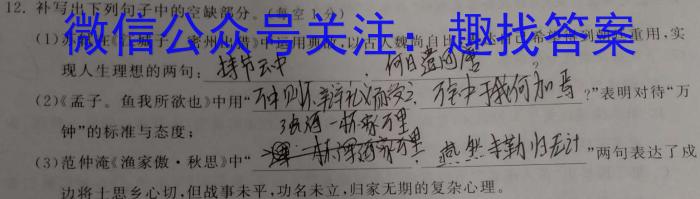 12. 补写出下列句子中的空缺部分。(每空1分)
微信公众号关注：趣找答案
(1)苏轼在《江城子·密州出猎》中运用典故,以古人魏尚自比,重用,实
现人生理想的两句: 持节云中 , 何日遣冯唐
(2)《孟子。鱼我所欲也》中用“ 万钟则不辩礼义而受之 , 万钟于我何加焉 ?”表明对待“万
钟”的标准与态度;
浊酒一杯家万里
(3)范仲淹《渔家傲·秋思》中“ , 燕然未勒归无计 ”两句表达了戍
边将士思乡心切,但战事未平,功名未立,归家无期的复杂心理。